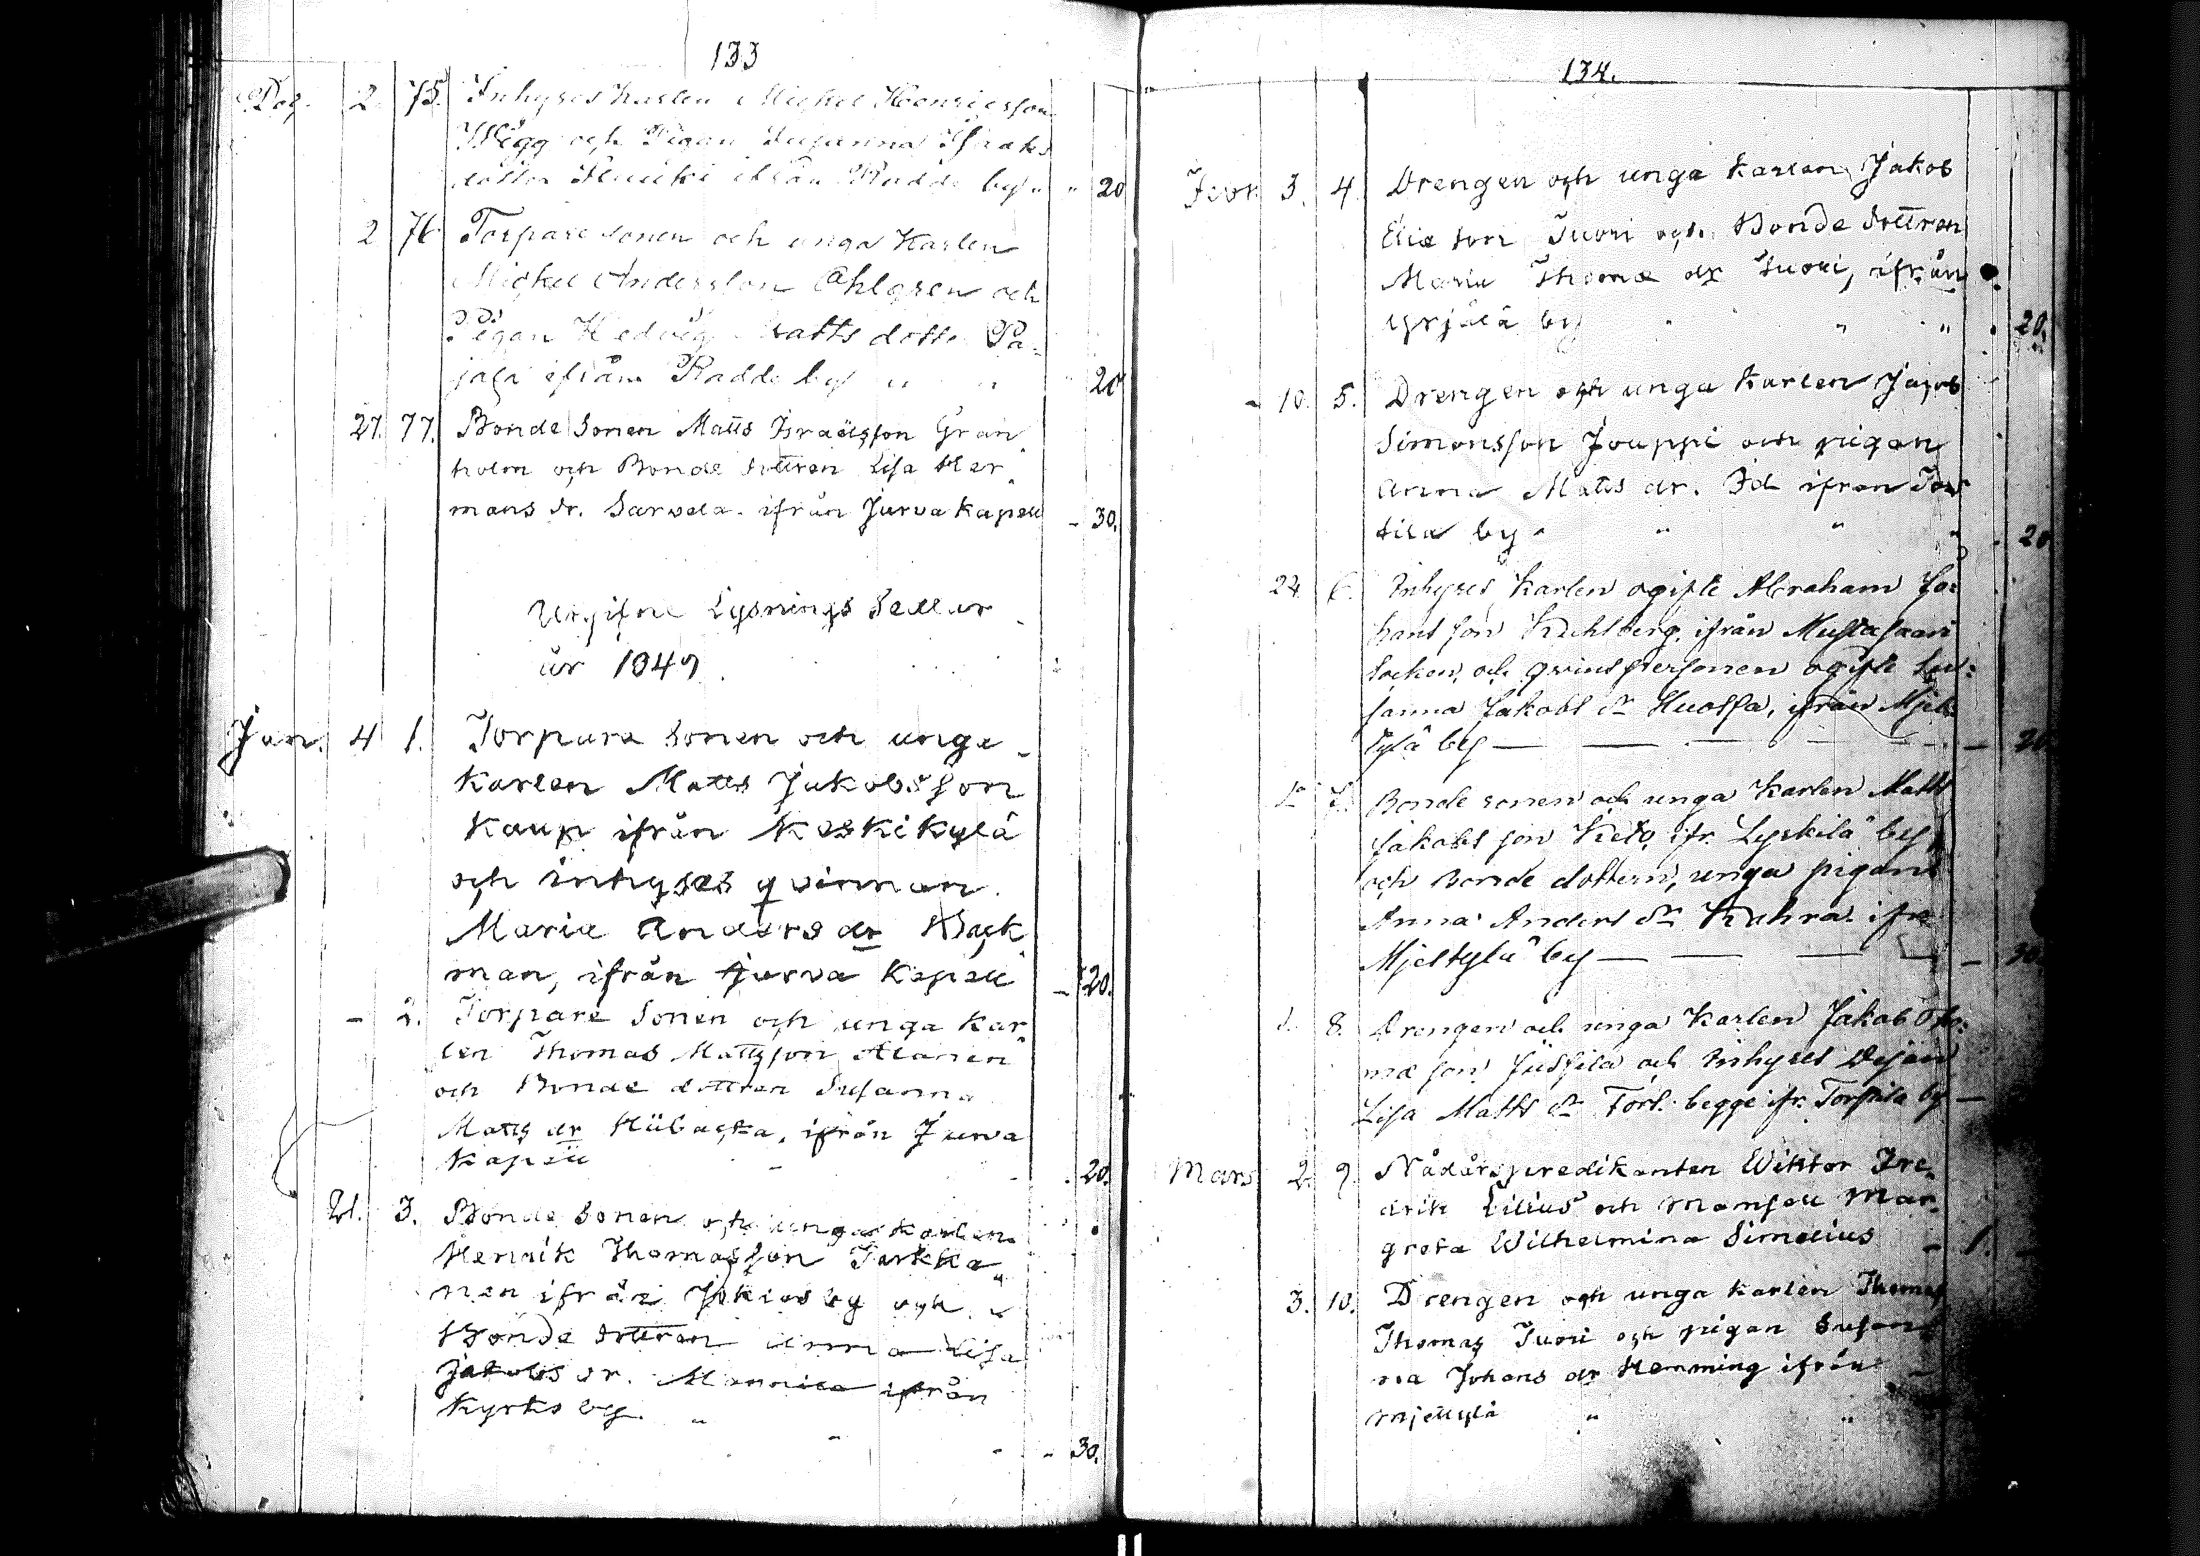 133
Dec. 2. 75. Inhyses karlen Mickel Henricsson
Wägg och Pigan Susanna Isaks
dotter ifrån Radde by " " 20
2 76 Torpare sonen och unga Karlen
Mickel Andersson Ahlgren och
Pigan Hedvig Matts dotter Pa-
jala ifrån Radde by " " 20
27. 77. Bonde Sonen Matts Israelsson Gran
holm och Bonde dottren Lisa Her
mans dr. Sarvela ifrån Jurva Kapell - 30.
Utgifne Lysnings Sedlar
år 1849.
Jan. 4 1. Torpare Sonen och unga
Karlen Matts Jakobsson
Kaup ifrån Keskikylä
och inhyses qvinnan
Maria Anders dr Back
man, ifrån Jurva Kapell - 20.
- 2. Torpare Sonen och unga Kar
len Thomas Mattsson Alanen
och Bonde dottren Susanna
Matts dr ifrån Jurva
Kapell - - . 20.
21. 3. Bonde Sonen och unga karlen
Henrik Thomasson Turkka
nen ifrån by och
Bonde dottren Anna Lisa
Jakobs dr. Mannila ifrån
Kyrko by. " - - - 30.
134.
Febr. 3. 4. Drengen och unga Karlen Jakob
Eliæ son Tuori och Bonde dottren
Maria Thomæ dr Tuori, ifrån
Yrjälä by " " " . 20.
- 10. 5. Drengen och unga Karlen Jacob
Simonsson Jouppi och pigan
Anna Matts dr. ifrån
tila by " " " " . 20
24. 6. Inhyses Karlen ogifte Abraham Jo-
hans son Kuhlberg, ifrån Mustasaari
Socken, och qvinspersonen ogifte Su-
sanna Jakobs dr ifrån Mjel-
kylä by — — — — 20
7. Bonde sonen och unga Karlen Matts
Jakobs son Keto, ifr. Lyskilä by
och Bonde dottern, unga pigan
Anna Anders dr Kahra ifr.
Mjelkylä by — — — — 30.
8. Drengen och unga Karlen Jakob Tho-
mæ son och Inhyses Dejan
Lisa Matts dr begge ifr. by —
Mars 2. 9. Nådårspredikanten Wiktor Fre-
drik Lilius och Mamsell Mar-
greta Wilhelmina Simelius - 1. -
3. 10. Drengen och unga karlen Thomas
Thomas Tuori och pigan Susan
na Johans dr Hemming ifrån
Mjelkylä " "